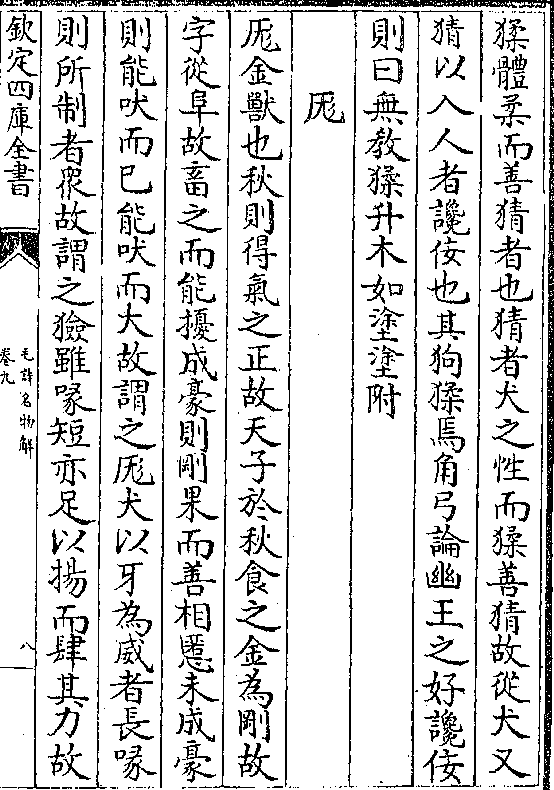 猱體柔而善猜者也猜者犬之性而猱善猜故從犬又
猜以入人者讒佞也其狗猱焉角弓論幽王之好讒佞
則曰無教猱升木如塗塗附
尨
尨金獸也秋則得氣之正故天子於秋食之金為剛故
字從阜故畜之而能擾成豪則剛果而善相慝未成豪
則能吠而已能吠而大故謂之尨犬以牙為威者長喙
則所制者衆故謂之獫雖喙短亦足以揚而肆其力故
欽定四庫全書
毛詩名物解
卷九
八